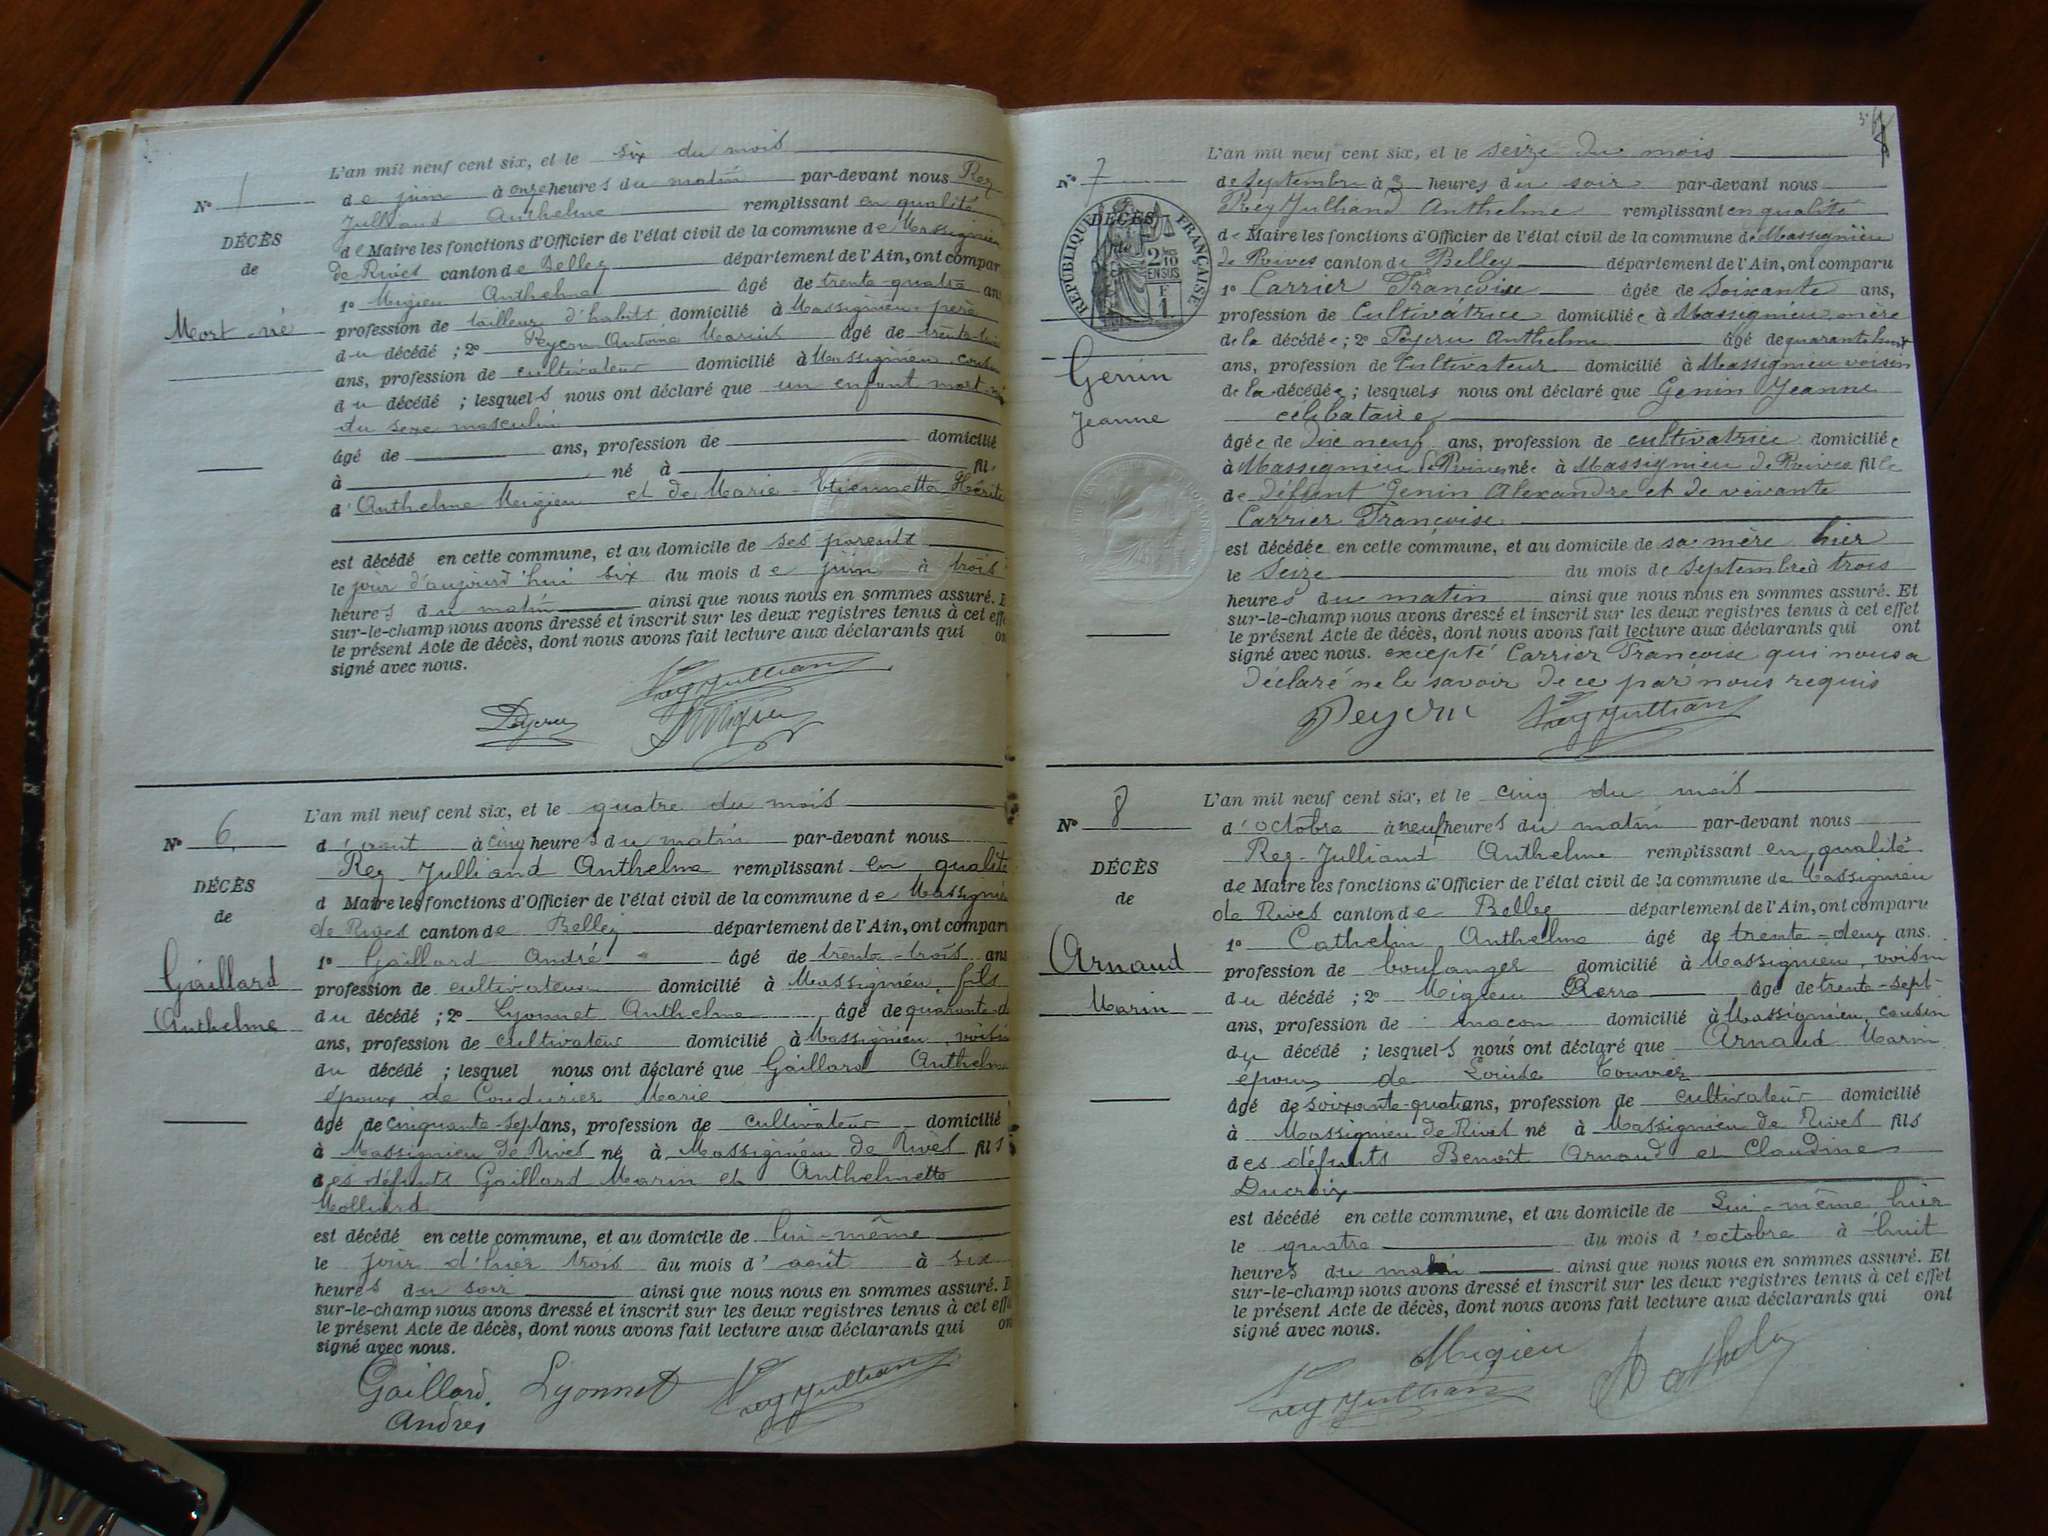 L'an mil neuf cent six, et le six du mois
de juin à onze heures du matin par-devant nous Rey
Julliand Anthelme remplissant en qualité
de Maire les fonctions d'Officier de l'état civil de la commune de Massignieu
de Rives canton de Belley département de l'Ain, ont compar
1º Migieu Anthelme âgé de trente-quatre ans
profession de tailleur d'habits domicilié à Massignieu père
du décédé ; 2º Peycru Antoine Marius âgé de
ans, profession de cultivateur domicilié à Massignieu cousin
du décédé ; lesquels nous ont déclaré que un enfant mort-né
du sexe masculin
âgé de ans, profession de domicilié
à né à fils
d'Anthelme Migieu et de Marie-Etiennette
est décédé en cette commune, et au domicile de ses parents
le jour d'aujourd'hui six du mois de juin à trois
heures du matin ainsi que nous nous en sommes assuré. E
sur-le-champ nous avons dressé et inscrit sur les deux registres tenus à cet effe
le présent Acte de décès, dont nous avons fait lecture aux déclarants qui on
signé avec nous.
Nº 1
DÉCÈS
de
Mort-né
Rey Julliand
Peycru Migieu
Nº 6
DÉCÈS
de
Gaillard
Anthelme
L'an mil neuf cent six, et le quatre du mois
d'août à cinq heures du matin par-devant nous
Rey-Julliand Anthelme remplissant en qualité
d Maire les fonctions d'Officier de l'état civil de la commune de Massignieu
de Rives canton de Belley département de l'Ain, ont comparu
1º Gaillard André âgé de trente-trois ans
profession de cultivateur domicilié à Massignieu, fils
du décédé ; 2º Lyonnet Anthelme âgé de quarante-d
ans, profession de cultivateur domicilié à Massignieu, voisin
du décédé ; lesquel nous ont déclaré que Gaillard Anthelme
époux de Coudurier Marie
âgé de cinquante-sept ans, profession de cultivateur domicilié
à Massignieu de Rives né à Massignieu de Rives fils
des défunts Gaillard Marin et Anthelmette
Molliard
est décédé en cette commune, et au domicile de lui-même
le jour d'hier trois du mois d'août à six
heures du soir ainsi que nous nous en sommes assuré. E
sur-le-champ nous avons dressé et inscrit sur les deux registres tenus à cet effe
le présent Acte de décès, dont nous avons fait lecture aux déclarants qui on
signé avec nous.
Gaillard Lyonnet Rey Julliand
André
Nº 7
DÉCÈS
de
RÉPUBLIQUE FRANÇAISE
2/10 EN SUS
F 1
Genin
Jeanne
L'an mil neuf cent six, et le seize du mois
de septembre à 3 heures du soir par-devant nous
Rey Julliand Anthelme remplissant en qualité
de Maire les fonctions d'Officier de l'état civil de la commune de Massignieu
de Rives canton de Belley département de l'Ain, ont comparu
1º Carrier Françoise âgée de soixante ans,
profession de Cultivatrice domiciliée à Massignieu mère
de la décédée ; 2º Peycru Anthelme âgé de quarante huit
ans, profession de Cultivateur domicilié à Massignieu voisin
de la décédée ; lesquels nous ont déclaré que Genin Jeanne
célibataire
âgée de Dix neuf ans, profession de cultivatrice domiciliée
à Massignieu de Rives née à Massignieu de Rives fille
de défunt Genin Alexandre et de vivante
Carrier Françoise
est décédée en cette commune, et au domicile de sa mère hier
le Seize du mois de septembre à trois
heures du matin ainsi que nous nous en sommes assuré. Et
sur-le-champ nous avons dressé et inscrit sur les deux registres tenus à cet effet
le présent Acte de décès, dont nous avons fait lecture aux déclarants qui ont
signé avec nous. excepté Carrier Françoise qui nous a
déclaré ne le savoir de ce par nous requis
Peycru Rey Julliand
Nº 8
DÉCÈS
de
Arnaud
Marin
L'an mil neuf cent six, et le cinq du mois
d'octobre à neuf heures du matin par-devant nous
Rey-Julliand Anthelme remplissant en qualité
de Maire les fonctions d'Officier de l'état civil de la commune de Massignieu
de Rives canton de Belley département de l'Ain, ont comparu
1º Cathelin Anthelme âgé de trente-deux ans.
profession de boulanger domicilié à Massignieu, voisin
du décédé ; 2º Migieu Pierre âgé de trente-sept
ans, profession de maçon domicilié à Massignieu, cousin
du décédé ; lesquels nous ont déclaré que Arnaud Marin
époux de Louise Touvier
âgé de soixante-quatre ans, profession de cultivateur domicilié
à Massignieu de Rives né à Massignieu de Rives fils
des défunts Benoît Arnaud et Claudine
Ducroix
est décédé en cette commune, et au domicile de Lui-même, hier
le quatre du mois d'octobre à huit
heures du matin ainsi que nous nous en sommes assuré. Et
sur-le-champ nous avons dressé et inscrit sur les deux registres tenus à cet effet
le présent Acte de décès, dont nous avons fait lecture aux déclarants qui ont
signé avec nous.
Migieu
Rey Julliand Cathelin